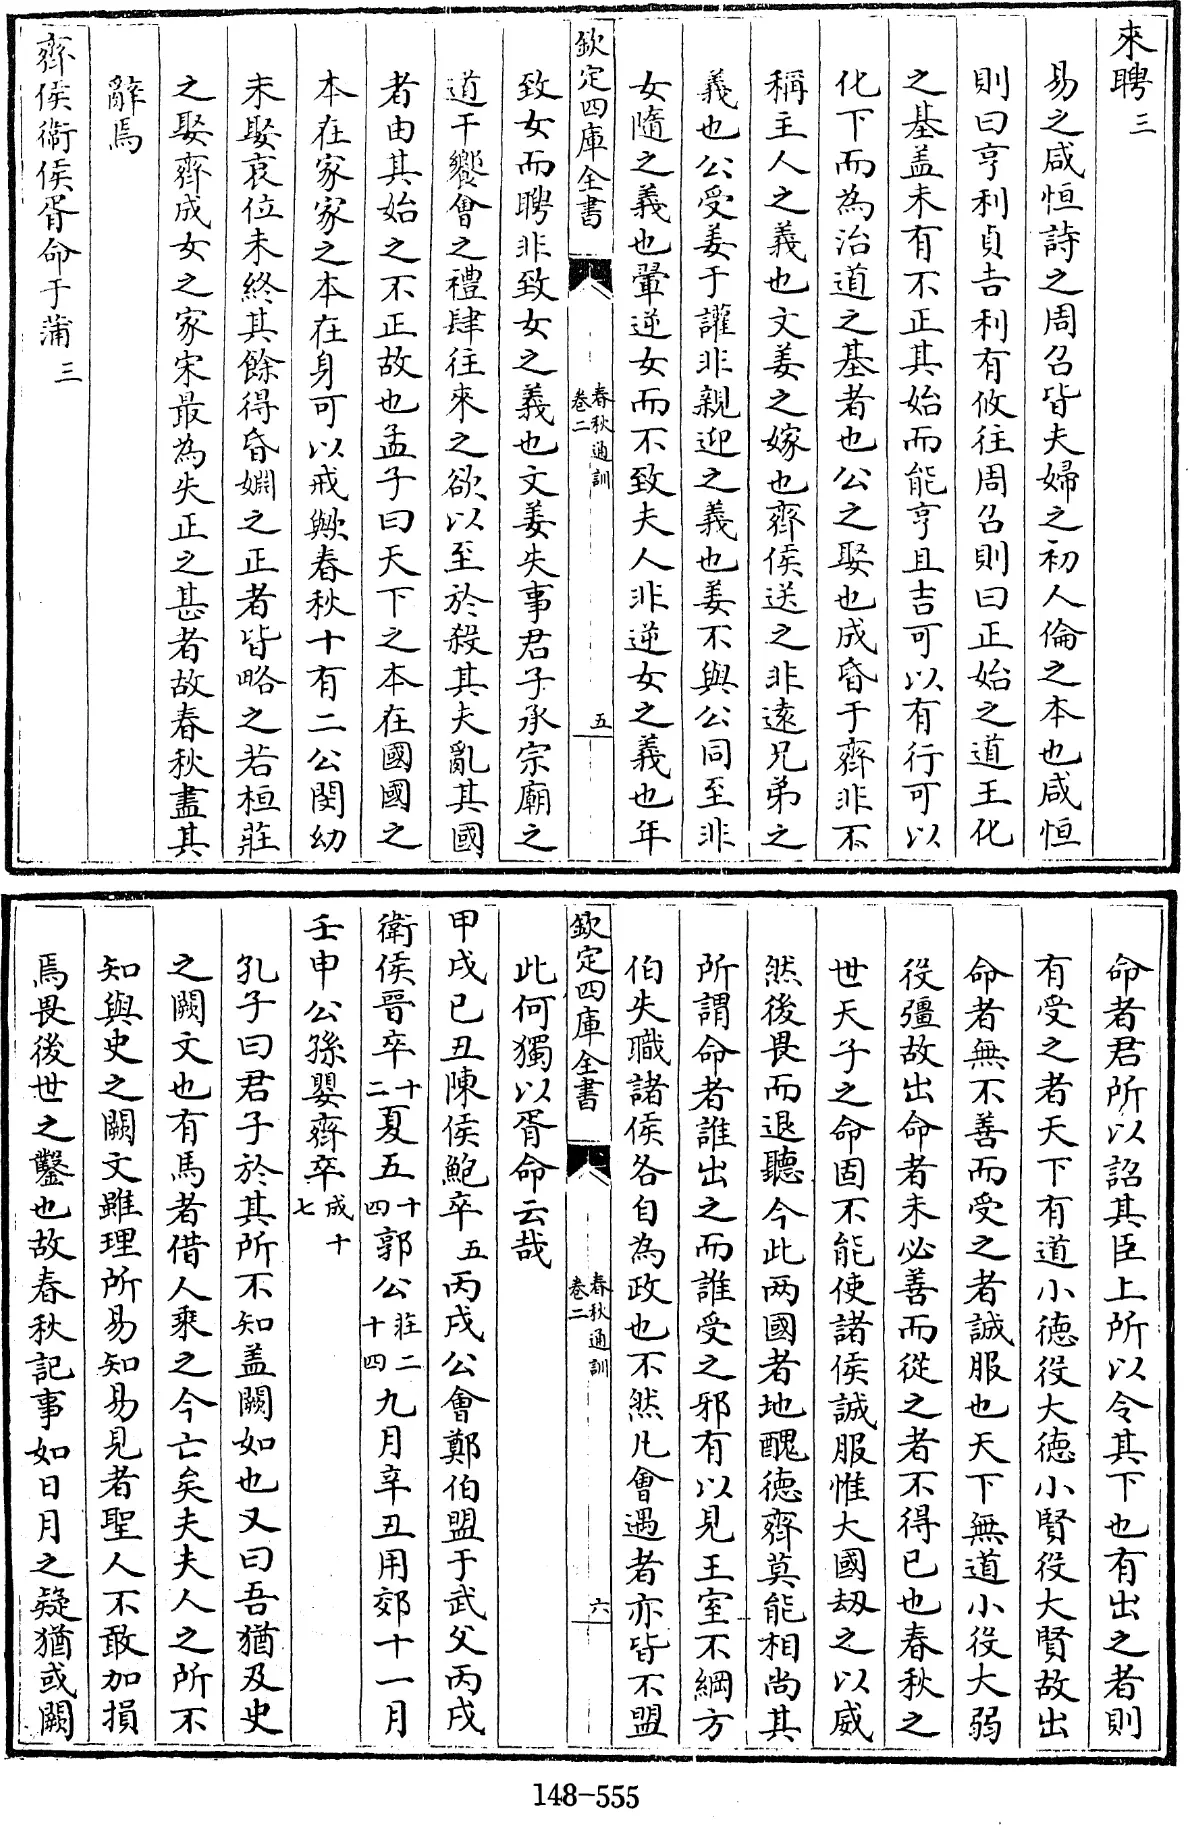 來聘三
易之咸恒詩之周召皆夫婦之初人倫之本也咸恒
則曰亨利貞吉利有攸往周召則曰正始之道王化
之基盖未有不正其始而能亨且吉可以有行可以
化下而為治道之基者也公之娶也成昏于齊非不
稱主人之義也文姜之嫁也齊侯送之非逺兄弟之
義也公受姜于讙非親迎之義也姜不與公同至非
女隨之義也翬逆女而不致夫人非逆女之義也年
欽定四庫全書
春秋通訓
卷二
五
致女而聘非致女之義也文姜失事君子承宗廟之
道干饗會之禮肆往來之欲以至於殺其夫亂其國
者由其始之不正故也孟子曰天下之本在國國之
本在家家之本在身可以戒歟春秋十有二公閔幼
未娶哀位未終其餘得昏婣之正者皆略之若桓莊
之娶齊成女之家宋最為失正之甚者故春秋盡其
辭焉
齊侯衛侯胥命于蒲三
命者君所以詔其臣上所以令其下也有出之者則
有受之者天下有道小德役大德小賢役大賢故出
命者無不善而受之者誠服也天下無道小役大弱
役彊故出命者未必善而從之者不得已也春秋之
世天子之命固不能使諸侯誠服惟大國刼之以威
然後畏而退聽今此两國者地醜德齊莫能相尚其
所謂命者誰出之而誰受之邪有以見王室不綱方
伯失職諸侯各自為政也不然凡會遇者亦皆不盟
欽定四庫全書
春秋通訓
卷二
六
此何獨以胥命云哉
甲戌已丑陳侯鮑卒五丙戌公會鄭伯盟于武父丙戌
衛侯晉卒十二夏五十四郭公莊二十四九月辛丑用郊十一月
壬申公孫嬰齊卒成十七
孔子曰君子於其所不知盖闕如也又曰吾猶及史
之闕文也有馬者借人乘之今亡矣夫夫人之所不
知與史之闕文雖理所易知易見者聖人不敢加損
焉畏後世之鑿也故春秋記事如日月之疑猶或闕
148-555